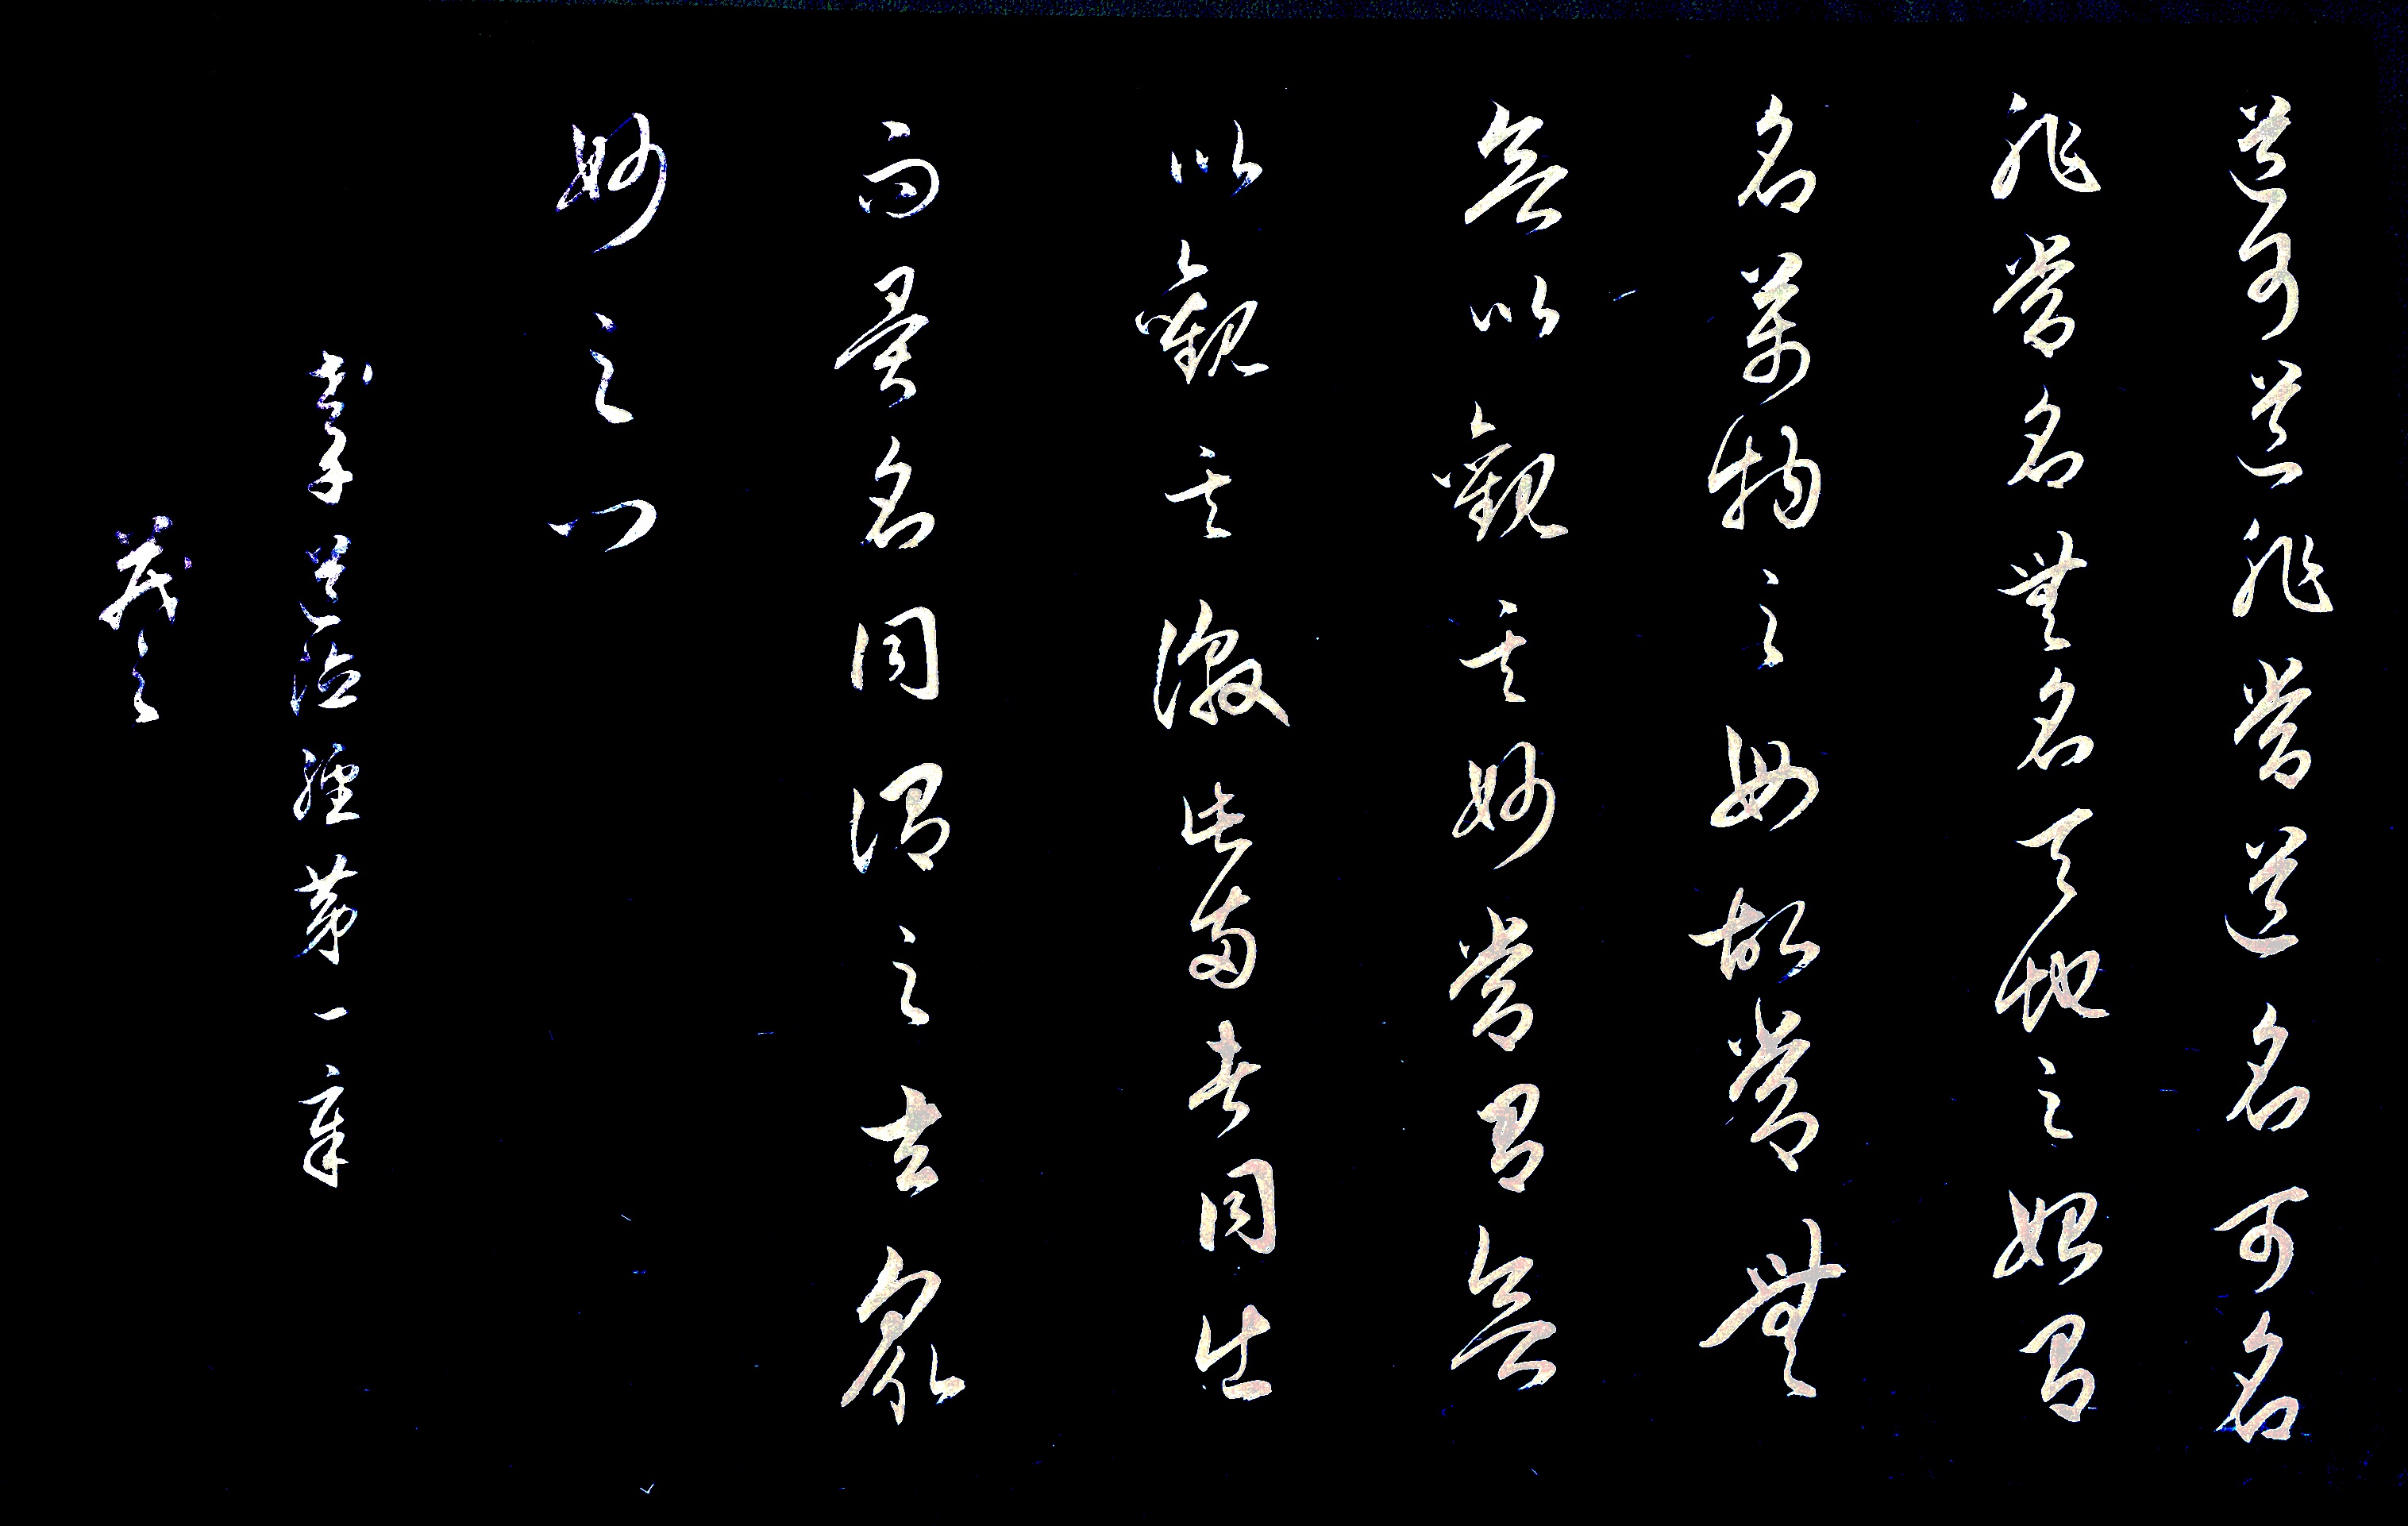 道可道非常道名可名
非常名無名天地之始有
名萬物之母故常無
欲以觀其妙常有欲
以觀其徼此兩者同出
而異名同謂之玄衆
妙之門
老子道德經第一章